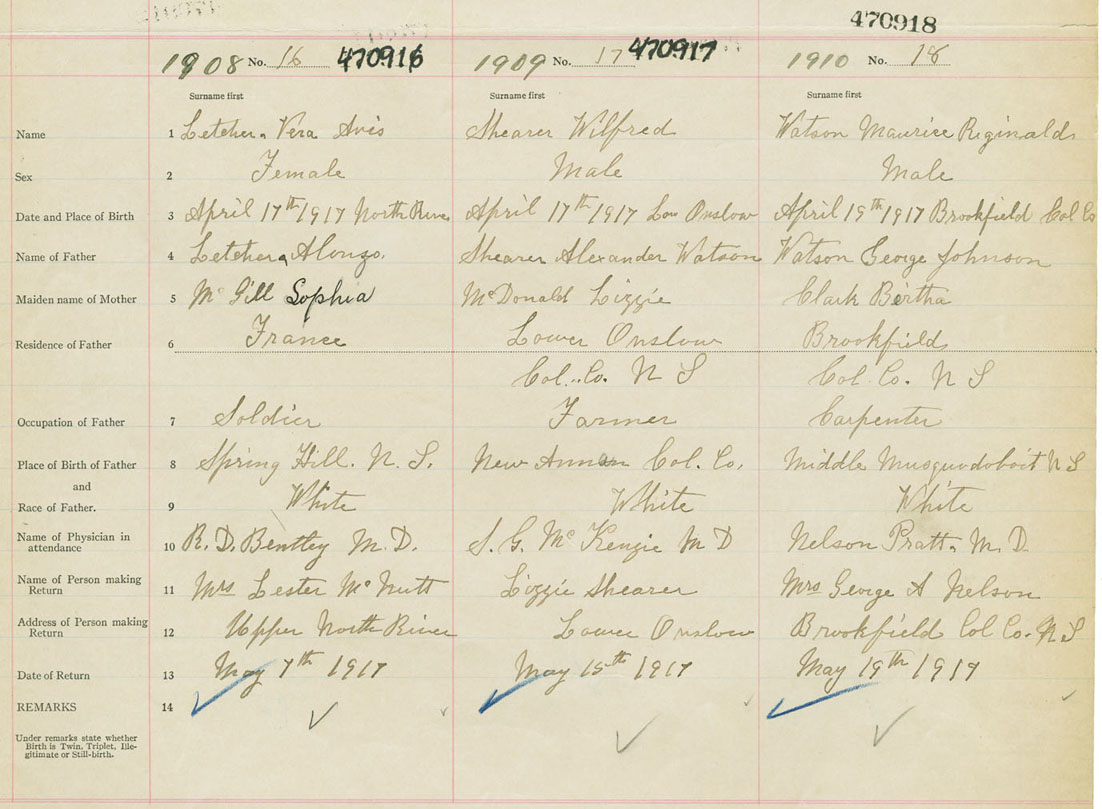 470918
1908 No. 16 470916 1909 No. 17 470917 1910 No. 18
Surname first Surname first Surname first
Name 1 Letcher, Vera Avis Shearer Wilfred Watson Maurice Reginald
Sex 2 Female Male Male
Date and Place of Birth 3 April 17th 1917 North River April 17th 1917 Low Onslow April 19th 1917 Brookfield Col Co
Name of Father 4 Letcher, Alonzo. Shearer Alexander Watson Watson George Johnson
Maiden name of Mother 5 Mc Gill Sophia McDonald Lizzie Clark Bertha
Residence of Father 6 France Lower Onslow Brookfield
Col. Co. N S Col. Co. N S
Occupation of Father 7 Soldier Farmer Carpenter
Place of Birth of Father 8 Spring Hill. N. S. New Annan Col. Co. Middle Musquodoboit N S
and
Race of Father. 9 White White White
Name of Physician in
attendance 10 R. D. Bentley M. D. S. G. McKenzie M D Nelson Pratt, M. D.
Name of Person making
Return 11 Mrs Lester McNutt Lizzie Shearer Mrs George A Nelson
Address of Person making
Return 12 Upper North River Lower Onslow Brookfield Col Co. N S
Date of Return 13 May 7th 1917 May 15th 1917 May 19th 1917
REMARKS 14
Under remarks state whether
Birth is Twin, Triplet, Ille-
gitimate or Still-birth.